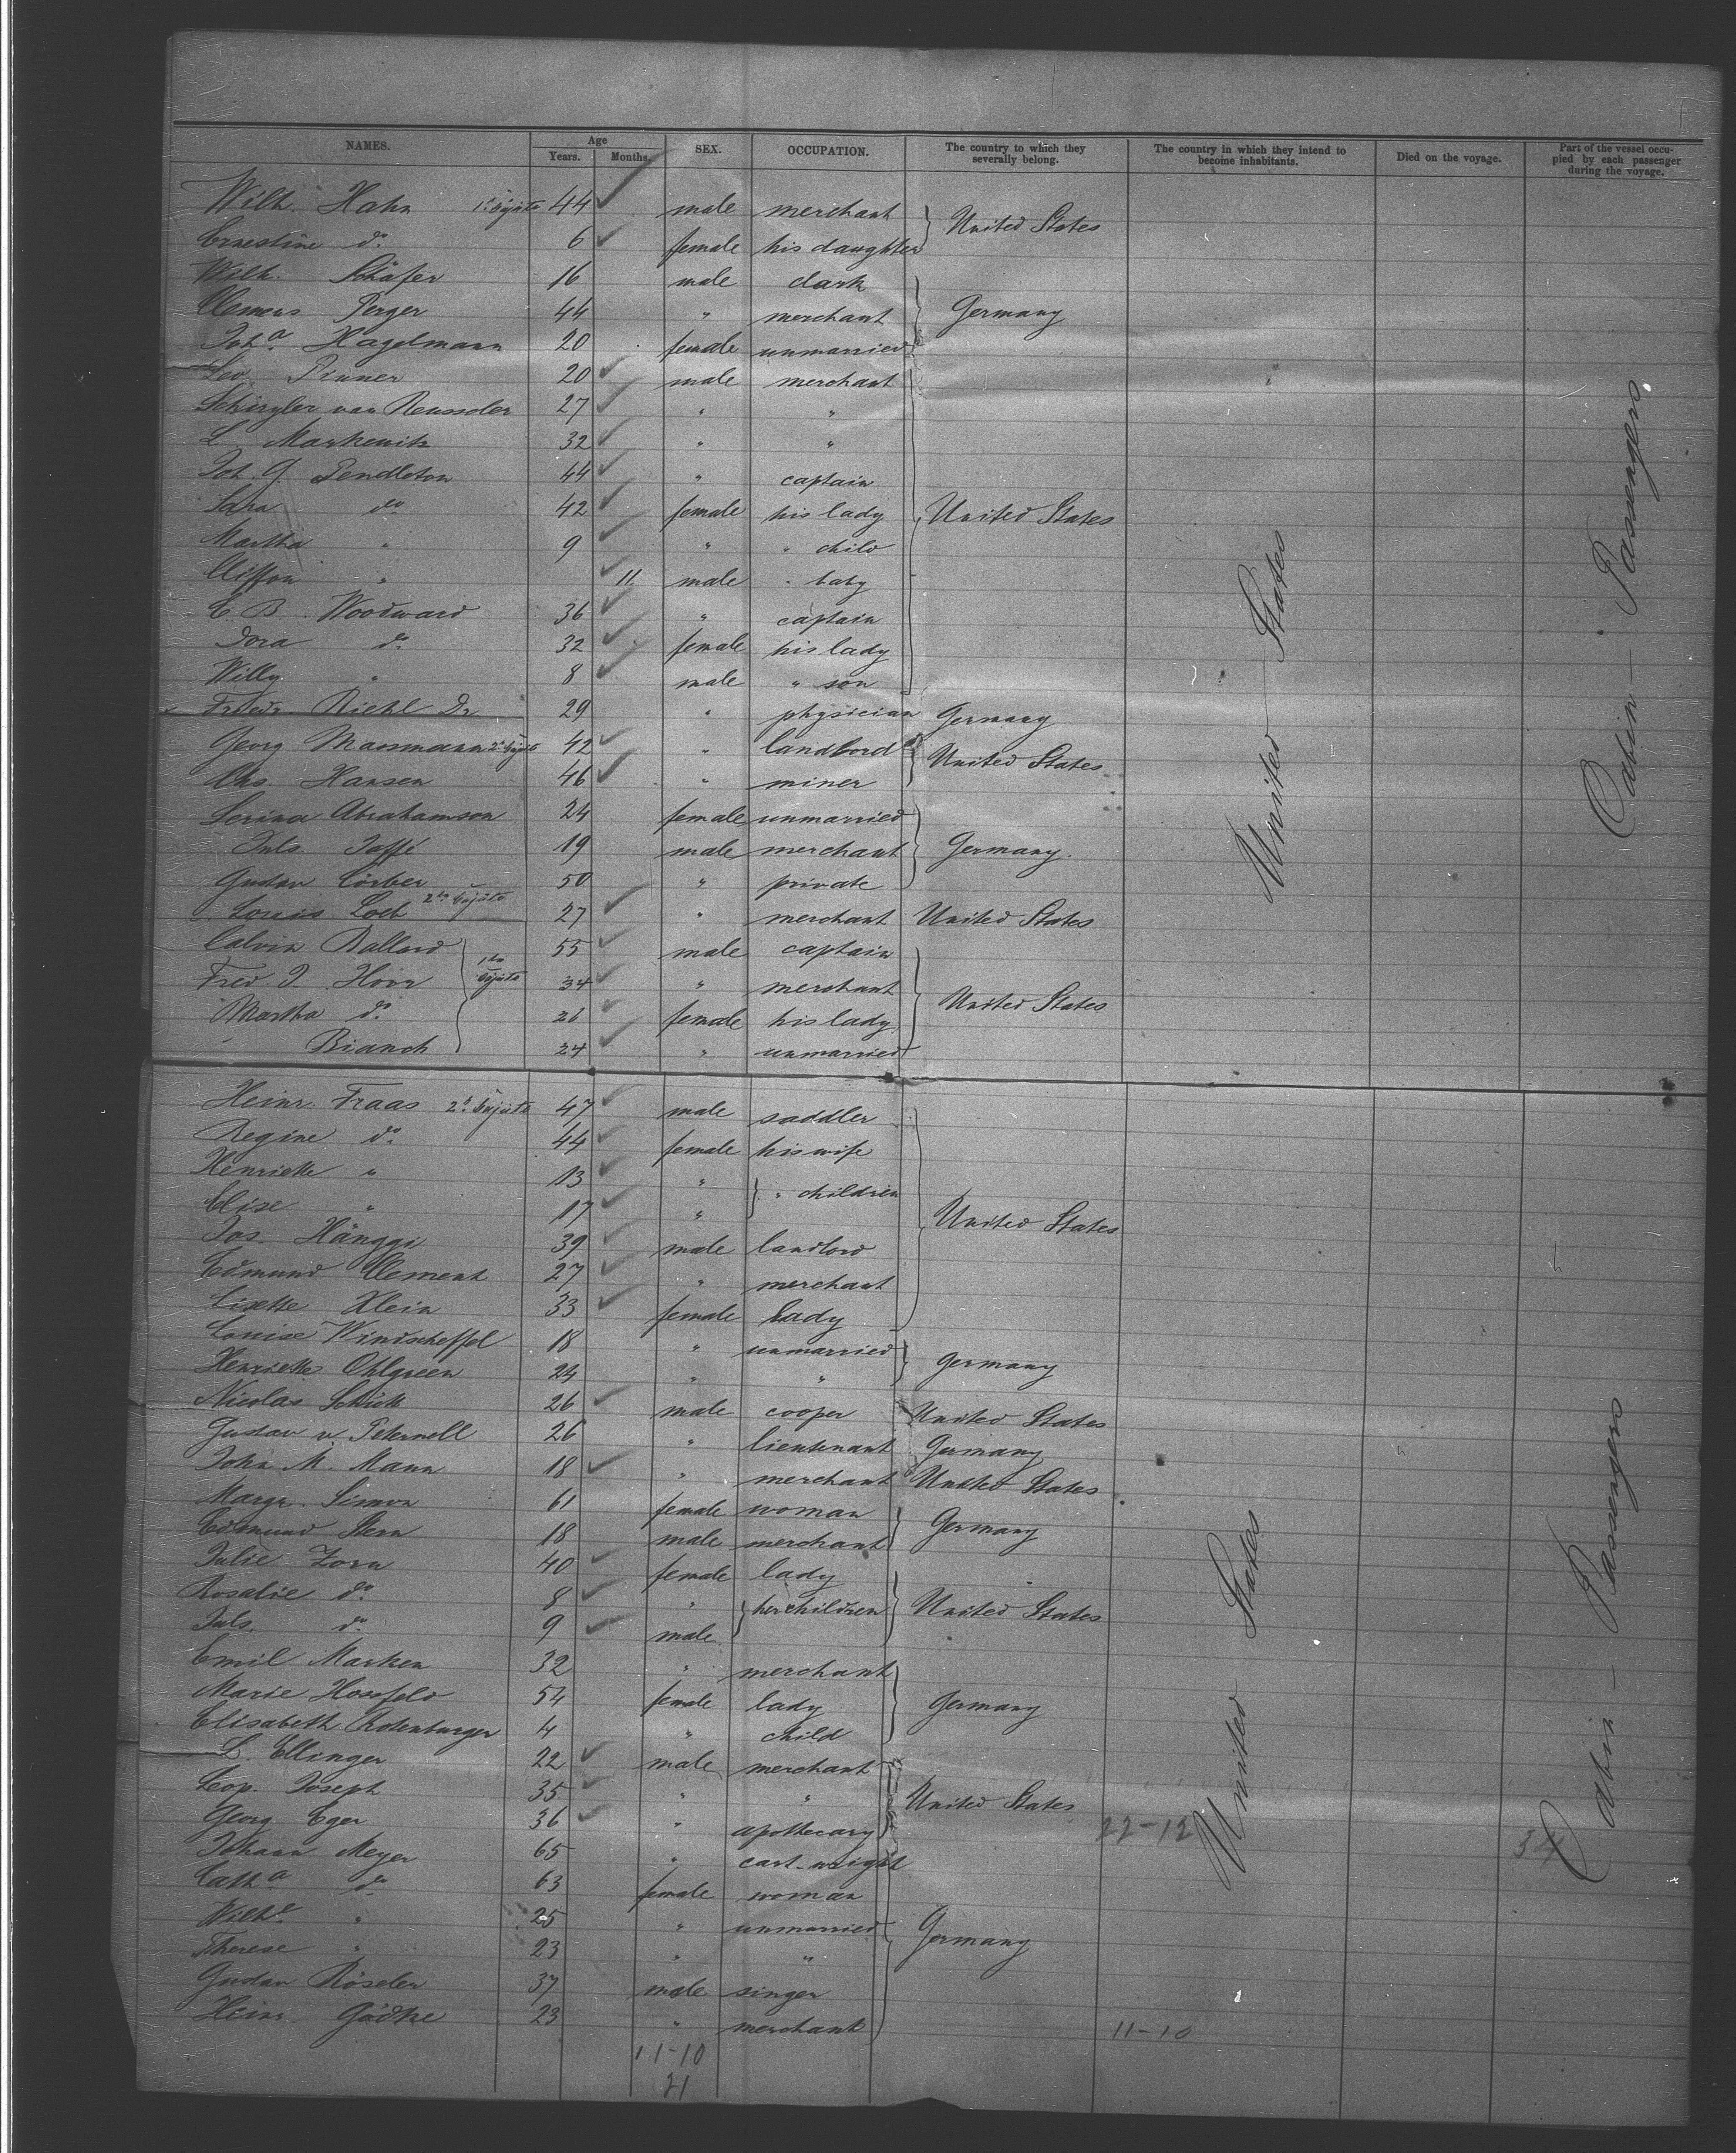 NAMES. Age Years. Months. SEX. OCCUPATION. The country to which they severally belong. The country in which they intend to become inhabitants. Died on the voyage. Part of the vessel occupied by each passenger during the voyage.
Wilh. Hahn 44 male merchant } United States
Ernestine do 6 female his daughter
Wilh. Schäfer 16 male clark
Clemens Perger 44 " merchant } Germany
Joha. Hagelmann 20 female unmarried
Leo Pruner 20 male merchant
27 " "
L. Markewitz 32 " "
Joh. G. Pendleton 44 " captain
Sara do 42 female his lady } United States
Martha " 9 " " child
Clifton " 11 male " baby
C. B. Woodward 36 " captain
Dora do 32 female his lady
Willy " 8 male " son
Friedr Riehl Dr 29 " physician Germany
Georg Mausmann 42 " landlord } United States
Chs. Hansen 46 " miner
Serina Abrahamson 24 female unmarried
Juls. Jaffé 19 male merchant } Germany.
Gustav Cörber 50 " private
Louis Loeb 27 " merchant United States
Calvin Ballard 55 male captain
Fred J. Hoor 34 " merchant } United States
Martha do 26 female his lady
Bianch 24 " unmarried
Heinr. Fraas 47 male saddler
Regine do 44 female his wife
Henriette " 13 " } " children
Elise " 17 "
Jos. Hänggi 39 male landlord } United States
Edmund Clement 27 " merchant
Lisette Klein 33 female lady
Louise Windscheffel 18 " unmarried } Germany
Henriette Ohlgreen 24 " "
Nicolas Schütt 26 male cooper United States
Gustav v. Peternell 26 " lieutenant Germany
John M. Mann 18 " merchant United States
Margr. Simon 61 female woman } Germany
Edmund Stern 18 male merchant
Julie Zorn 40 female lady
Rosalie do 8 " } her children United States
Juls. do 9 male
Emil Marken 32 " merchant
Marie Hossfeld 54 female lady } Germany
Elisabeth Rotenburger 4 " child
L. Ellinger 22 male merchant
Leop. Joseph 35 " " } United States
Georg Eger 36 " apothecary
Johann Meyer 65 " cart-wright
Catha do 63 female woman
Wilhe " 25 " unmarried } Germany
Therese " 23 " "
Gustav Röseler 37 male singer
Heinr. Gädke 23 " merchant
11-10
21
22-12
11-10
54
United States
Cabin - Passengers
United States
Cabin - Passengers